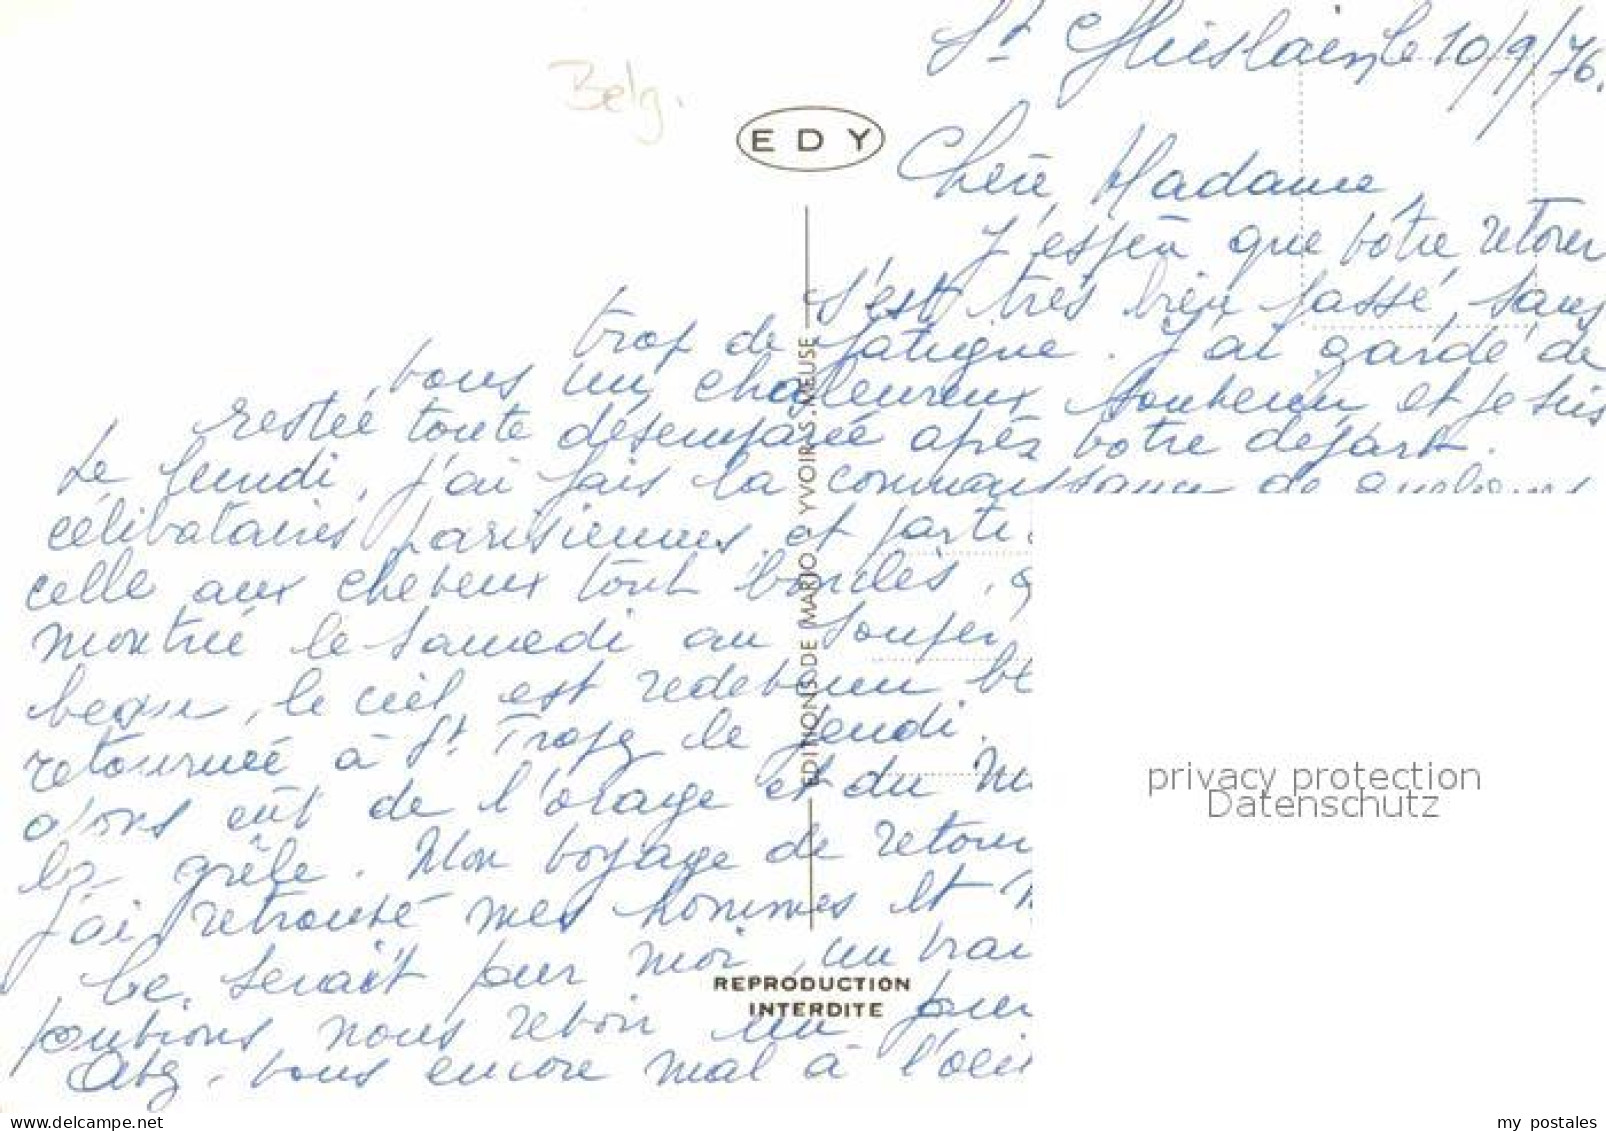 St Ghislain, le 10/9/76.
Belg.
EDY
Chère Madame,
J'espère que votre retour
s'est très bien passé, sans
trop de fatigue. J'ai gardé de
vous un chaleureux souvenir et je suis
restée toute désemparée après votre départ.
Le lundi, j'ai fais la connaissance de quelques
célibataires parisiennes et parti
celle aux cheveux tout bouclés, q
montrée le samedi au souper
beau, le ciel est redevenu bl
retournée à St Tropez le jeudi.
alors eût de l'orage et du
la grêle. Mon voyage de retour
J'ai retrouvé mes hommes et
Ce serait pour moi, un vrai
pouvions nous revoir un jour
Avez-vous encore mal à l'orei
EDITIONS DE MARIO YVOIR S. MEUSE
REPRODUCTION
INTERDITE
privacy protection
Datenschutz
www.delcampe.net
my_postales